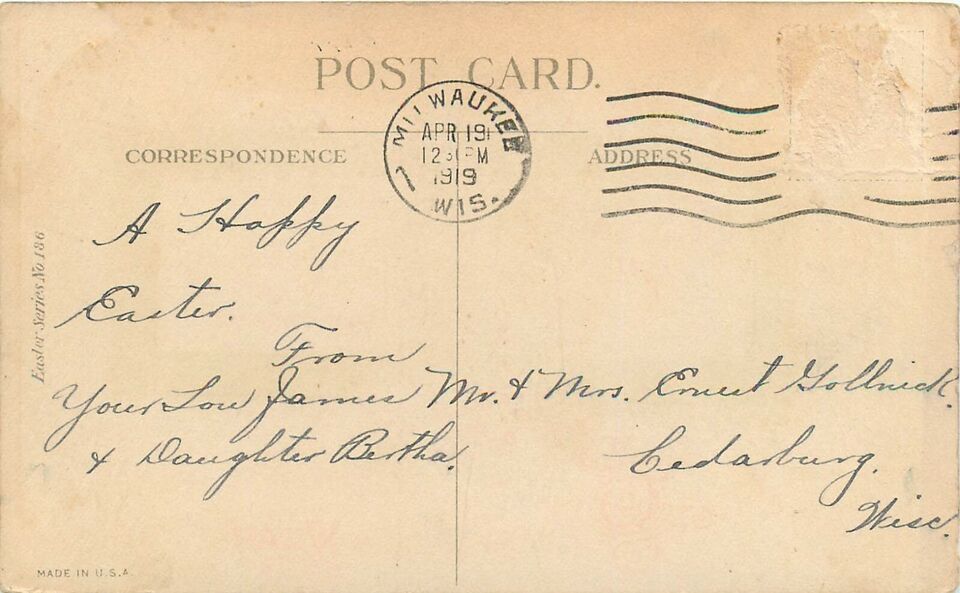 POST CARD.
MILWAUKEE
APR 19
12 30 PM
1919
WIS.
CORRESPONDENCE
ADDRESS
A Happy
Easter.
From
Your Son James
& Daughter Bertha.
Mr. & Mrs. Ernest Gollnick.
Cedarburg.
Wisc.
Easter Series No. 186
MADE IN U.S.A.